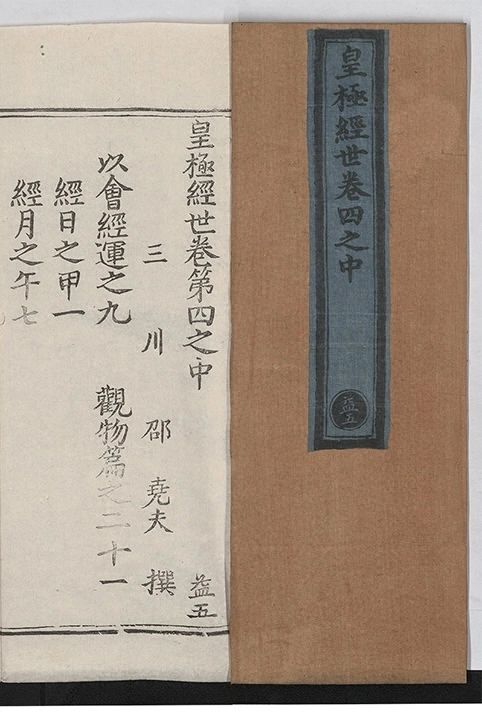 皇極經世卷四之中
益五
皇極經世卷第四之中 益五
三川 邵堯夫 撰
以會經運之九 觀物篇之二十一
經日之甲一
經月之午七